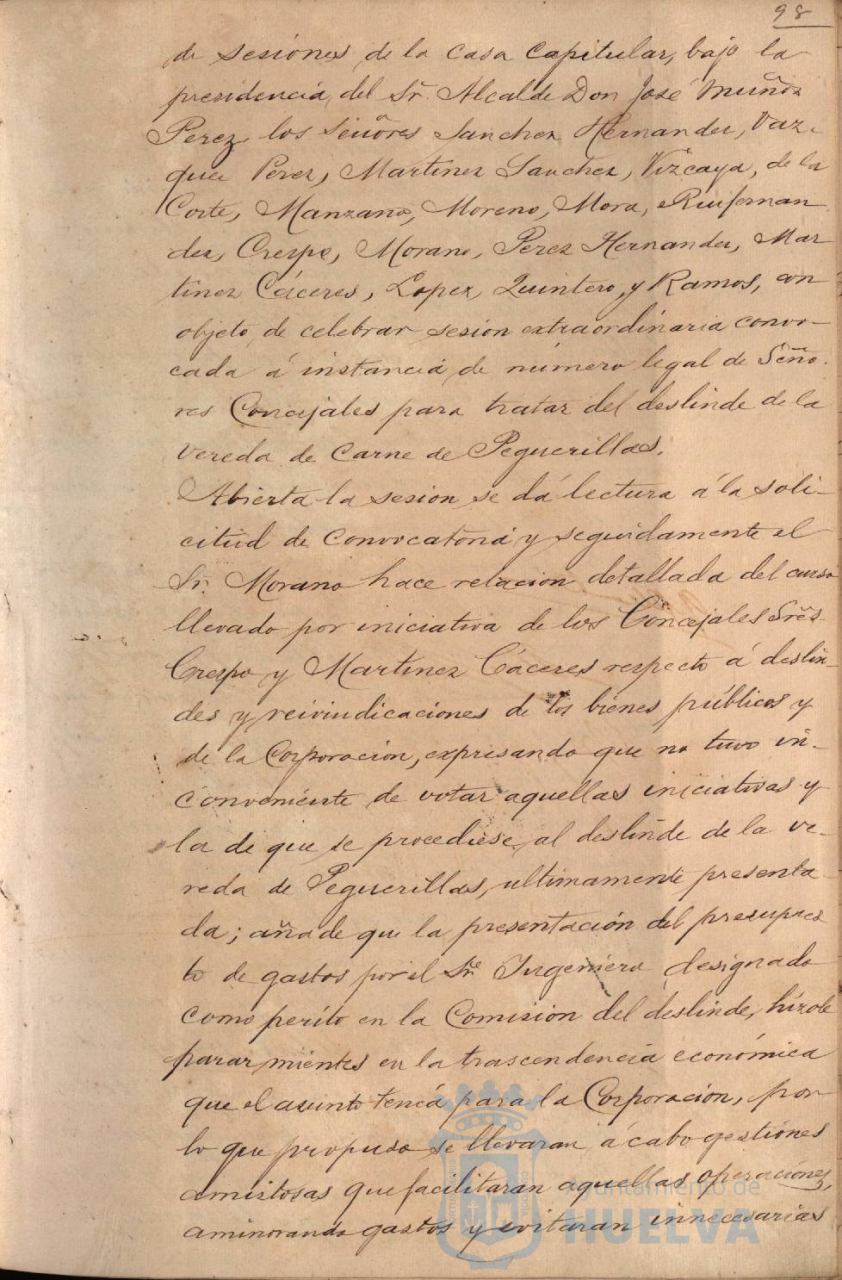 98
de sesiones de la casa capitular, bajo la
presidencia, del Sr. Alcalde Don José Muñoz
Perez los Señores Sanchez Hernandez, Vaz-
quez Perez, Martinez Sanchez, Vizcaya, de la
Corte, Manzano, Moreno, Mora, Ruifernan
dez, Crespo, Morano, Perez Hernandez, Mar
tinez Cáceres, Lopez, Quintero, y Ramos, con
objeto, de celebrar sesion extraordinaria convo-
cada á instancia, de número legal de Seño-
res Concejales para tratar del deslinde de la
vereda de carne de Peguerillas.
Abierta la sesion se dá lectura á la soli-
citud de convocatoria y seguidamente el
Sr. Morano hace relacion detallada del curso
llevado por iniciativa de los Concejales Sres
Crespo y Martinez Cáceres respecto á deslin-
des y reivindicaciones de los bienes públicos y
de la Corporacion, expresando que no tuvo in-
conveniente de votar aquellas iniciativas y
la de que se procediese, al deslinde de la ve-
reda de Peguerillas, ultimamente presenta-
da; añade que la presentación del presupues
to de gastos por el Sr. Ingeniero designado
como perito en la Comision del deslinde, hízole
parar mientes en la trascendencia económica
que el asunto tenia para la Corporacion, por
lo que propuso se llevaran á cabo gestiones
amistosas que facilitaran aquellas operaciones,
aminorando gastos y evitaran innecesarias
Ayuntamiento de
HUELVA